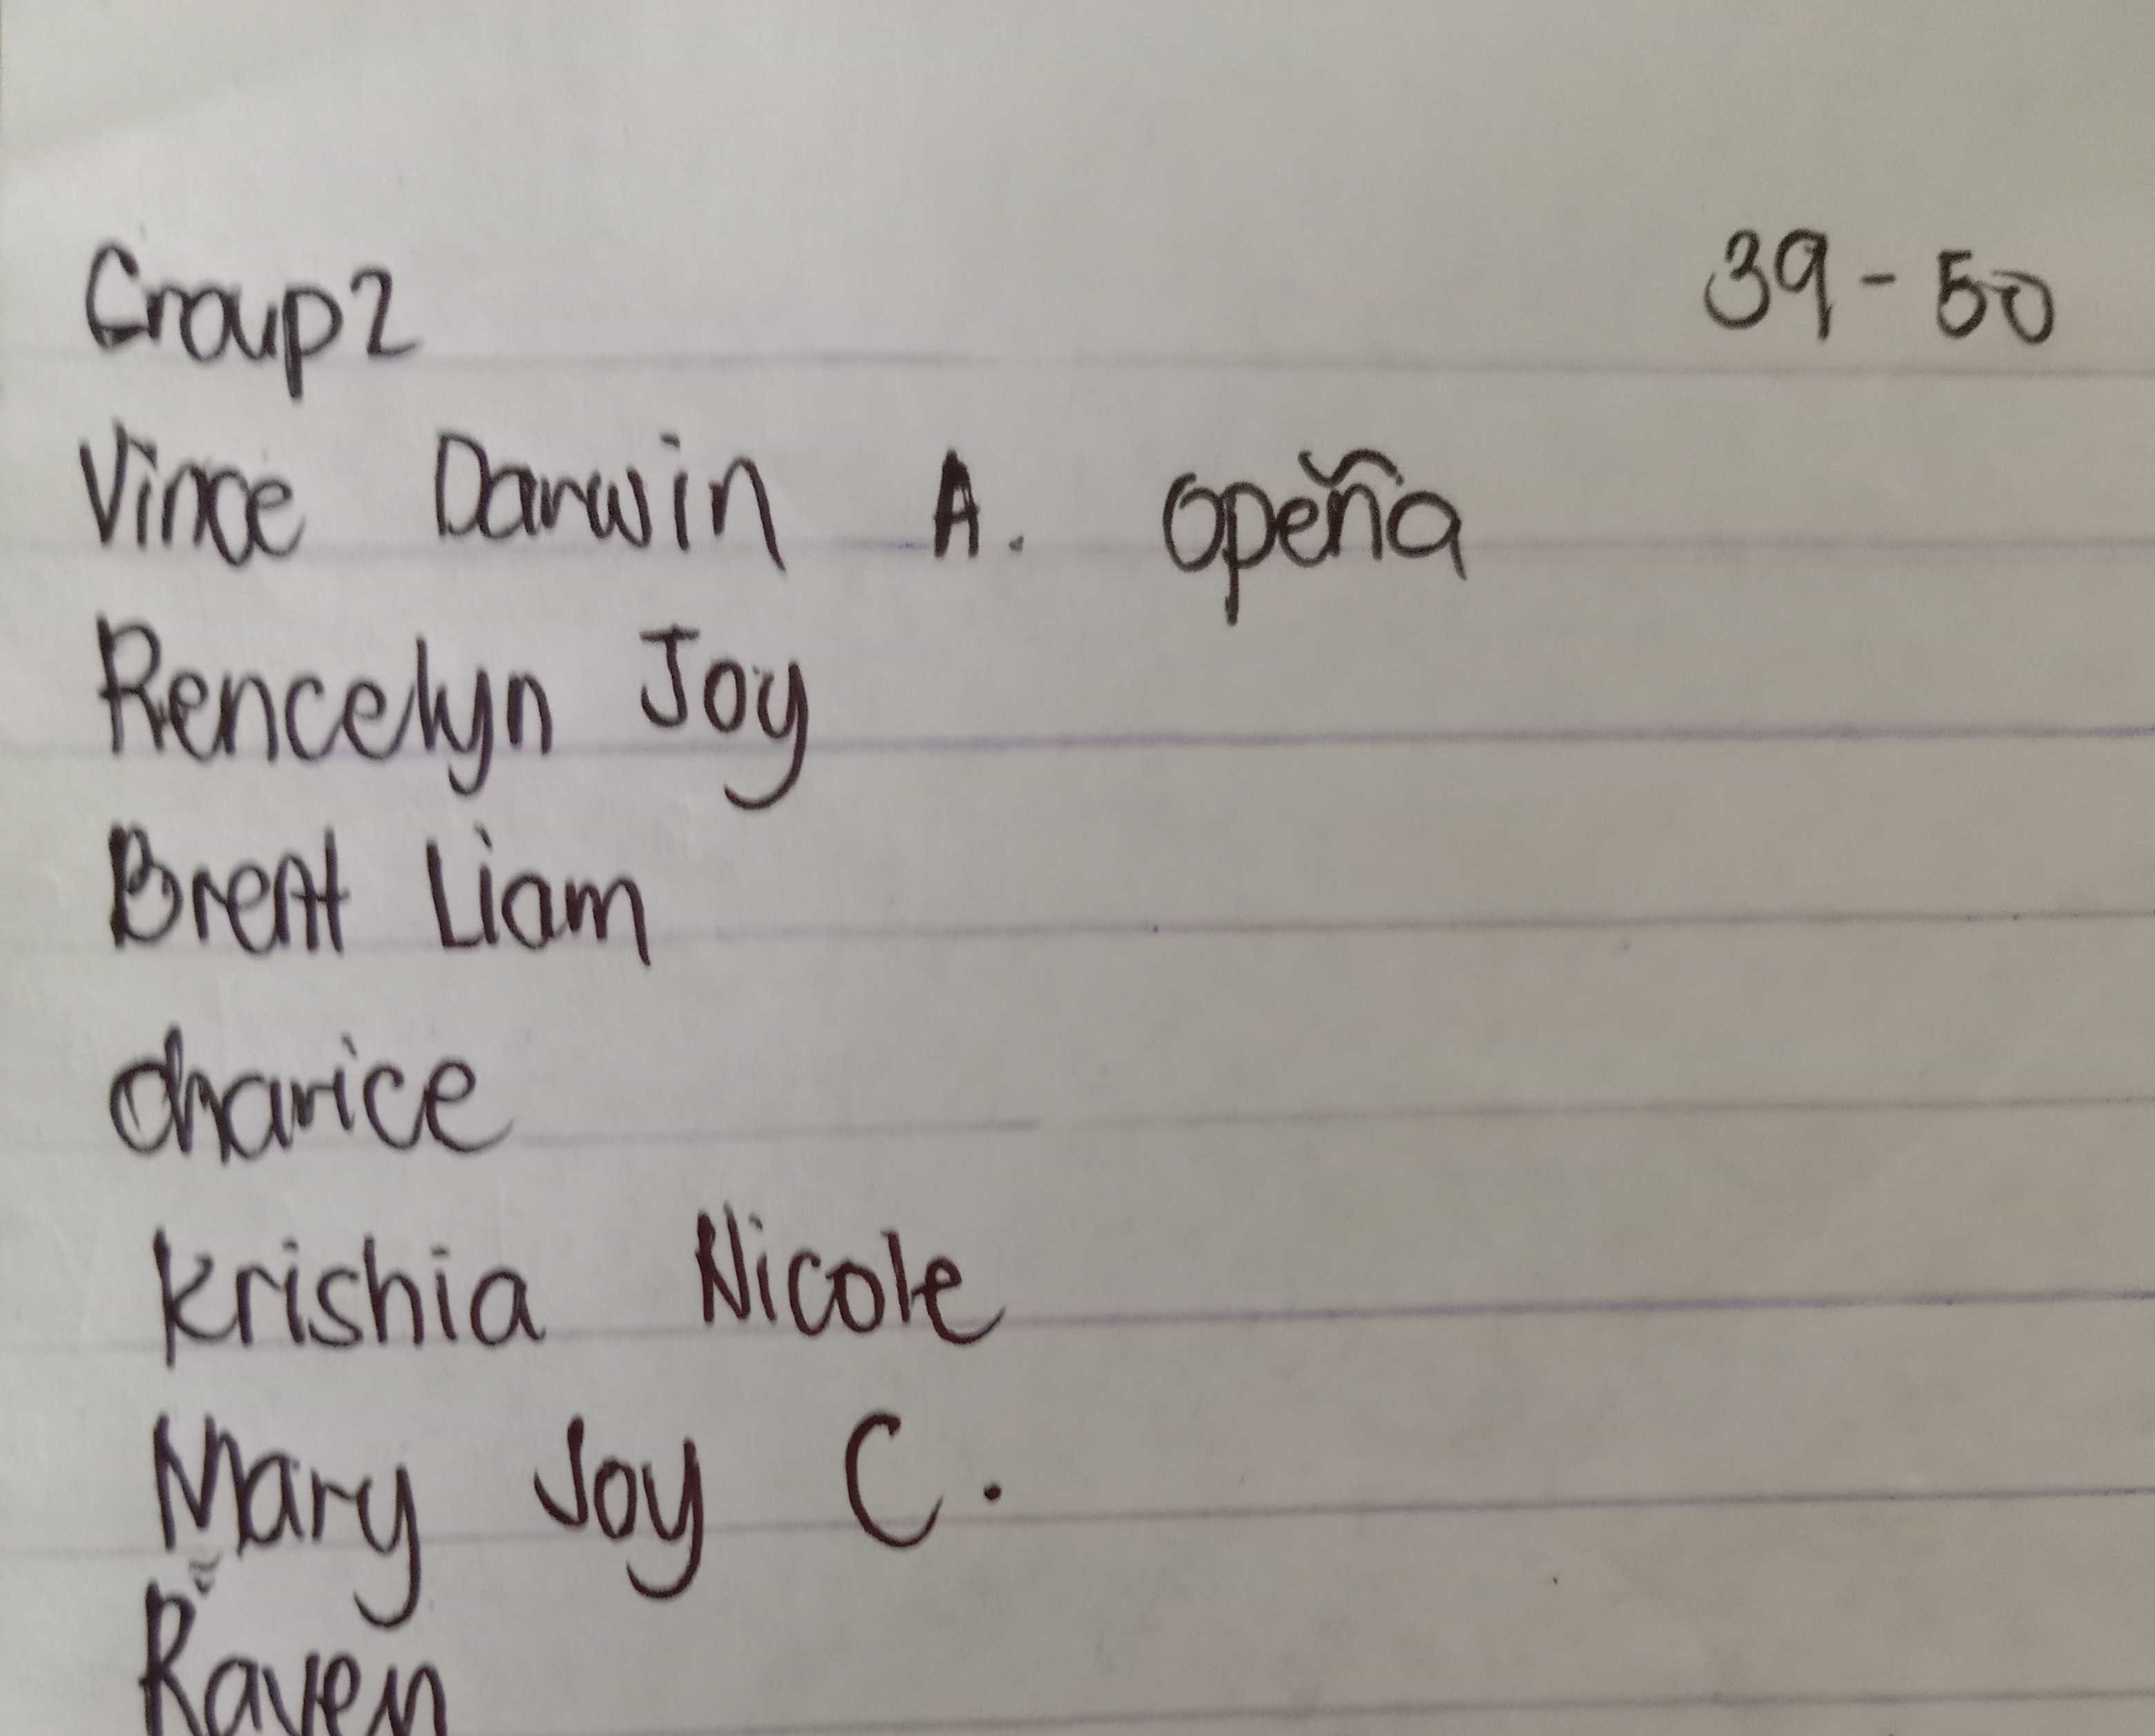 Group 2 39 - 50
Vince Darwin A. Opeña
Rencelyn Joy
Brent Liam
Charice
Krishia Nicole
Mary Joy C.
Raven